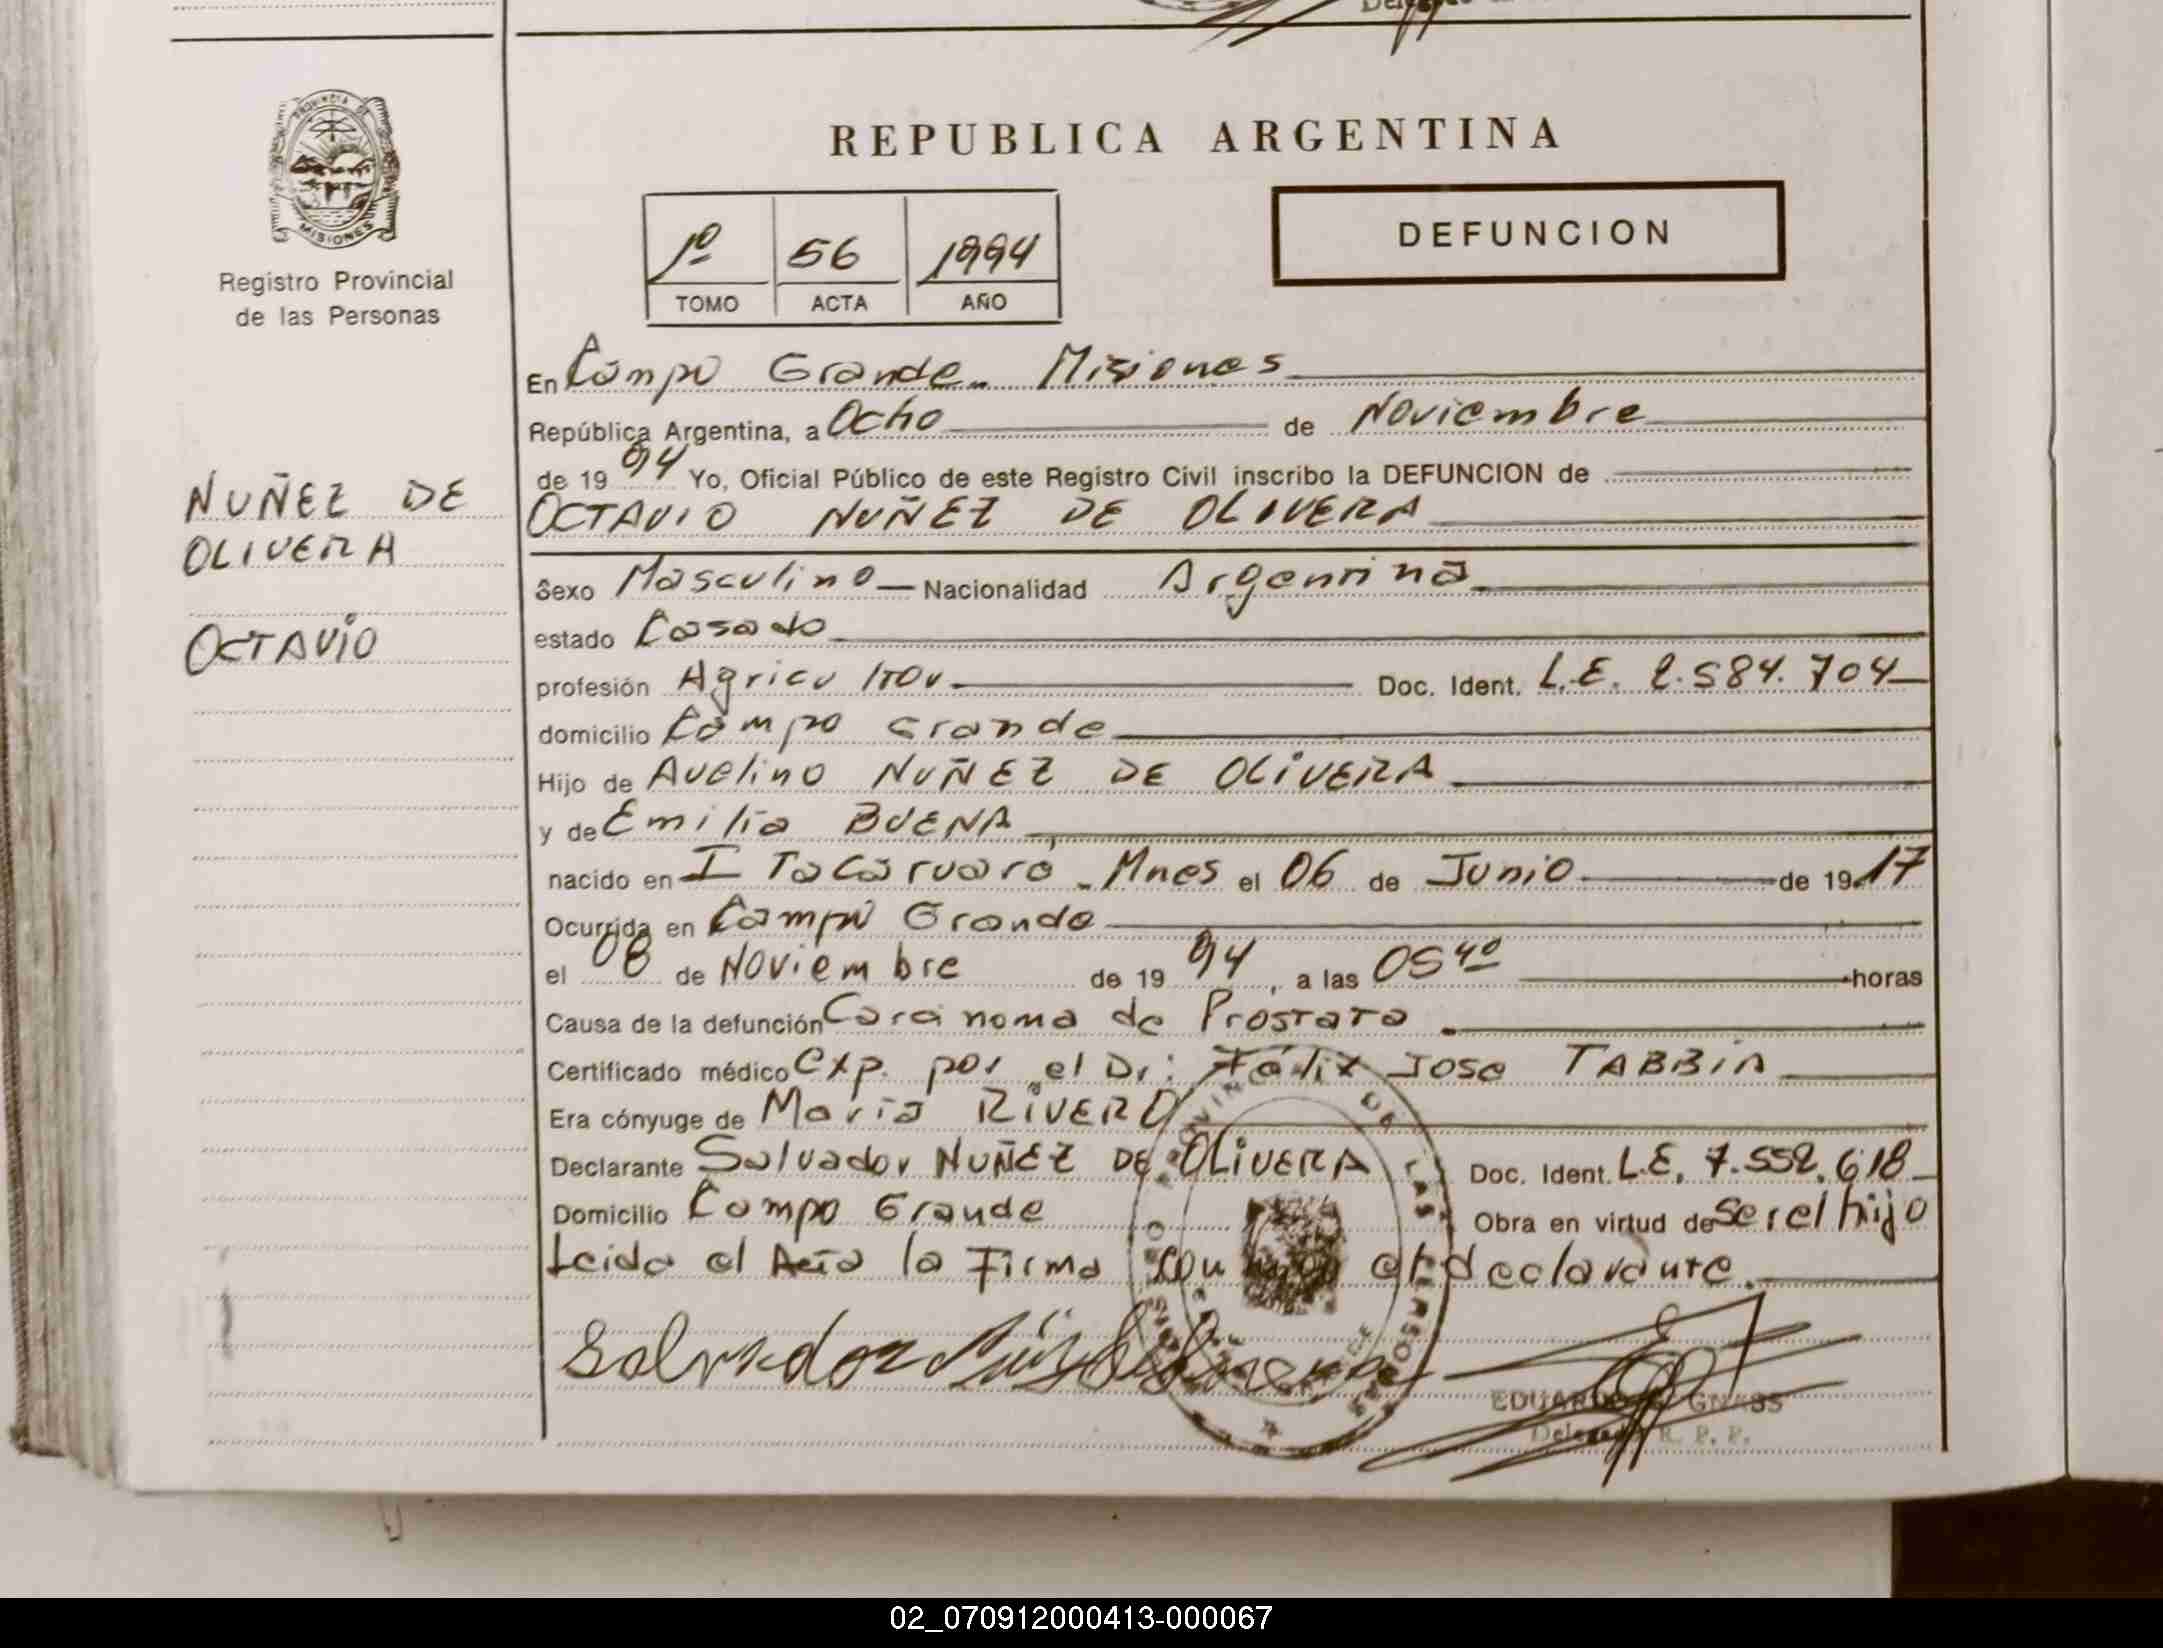 REPUBLICA ARGENTINA
PROVINCIA DE
MISIONES
Registro Provincial
de las Personas
1º 56 1994
TOMO ACTA AÑO
DEFUNCION
NUÑEZ DE
OLIVERA
OCTAVIO
En Campo Grande. Misiones
República Argentina, a Ocho de Noviembre
de 1994 Yo, Oficial Público de este Registro Civil inscribo la DEFUNCION de
OCTAVIO NUÑEZ DE OLIVERA
Sexo Masculino Nacionalidad Argentina
estado Casado
profesión Agricultor Doc. Ident. L.E. 2.584.704
domicilio Campo Grande
Hijo de Avelino NUÑEZ DE OLIVERA
y de Emilia BUENA
nacido en ITacaruaré. Mnes el 06 de Junio de 1917
Ocurrida en Campo Grande
el 08 de Noviembre de 1994, a las 05 40 horas
Causa de la defunción Carcinoma de Prostata
Certificado médico Exp. por el Dr: Félix Jose TABBIA
Era cónyuge de Maria RIVERO
Declarante Salvador NUÑEZ DE OLIVERA Doc. Ident. L.E. 7.552.618
Domicilio Campo Grande Obra en virtud de ser el hijo
Leida el Acta la Firma con migo el declarante.
Salvador
EDUARDO GNASS
Delegado R. P. P.
02_070912000413-000067